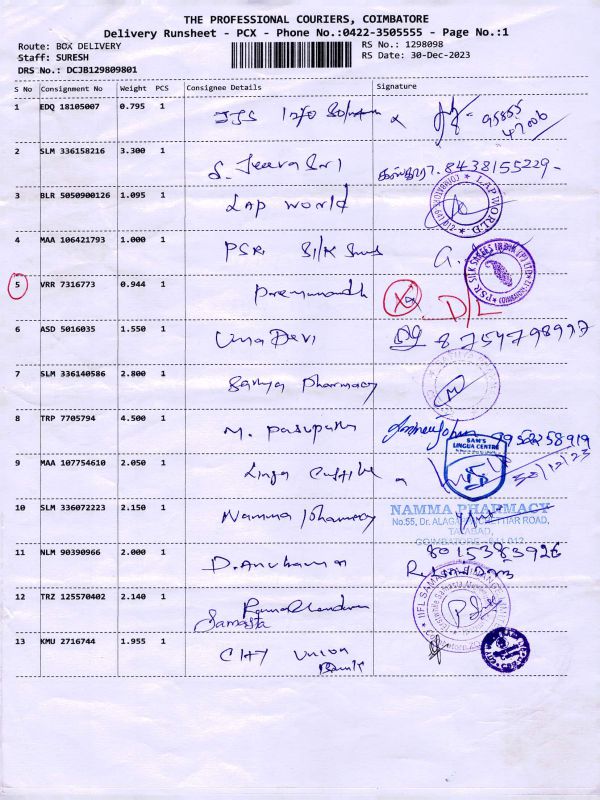 THE PROFESSIONAL COURIERS, COIMBATORE
Delivery Runsheet - PCX - Phone No.:0422-3505555 - Page No.:1
Route: BOX DELIVERY
Staff: SURESH
DRS No.: DCJB129809801
RS No.: 1298098
RS Date: 30-Dec-2023
S No Consignment No Weight PCS Consignee Details Signature
1 EDQ 18105007 0.795 1 95855
47006
2 SLM 336158216 3.300 1 S. Jeeva Sri 8438155229
3 BLR 5050900126 1.095 1 Lap World
LAP WORLD
4 MAA 106421793 1.000 1 PSR Silk
5 VRR 7316773 0.944 1 Premanandh D/L
6 ASD 5016035 1.550 1 Uma Devi 8754798997
7 SLM 336140586 2.800 1 Sanya Pharmacy
8 TRP 7705794 4.500 1 M. Pasupathi 9952258919
SAM'S
LINGUA CENTRE
9 MAA 107754610 2.050 1 30/12/23
10 SLM 336072223 2.150 1 Namma Pharmacy
NAMMA PHARMACY
No.55, Dr. ROAD,
COIMBATORE
11 NLM 90390966 2.000 1 8015383926
12 TRZ 125570402 2.140 1 Ramachandran
Samasta
13 KMU 2716744 1.955 1 City Union
Bank